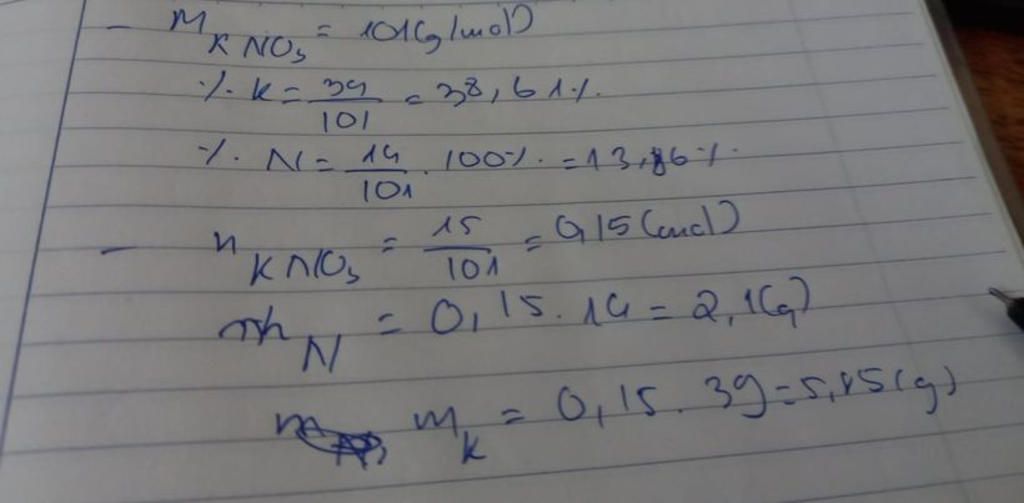 - M KNO3 = 101(g/mol)
% K = 39/101 = 38,61%.
% N = 14/101 . 100% = 13,86%.
- n KNO3 = 15/101 = 0,15 (mol)
m N = 0,15 . 14 = 2,1(g)
m K = 0,15 . 39 = 5,85(g)